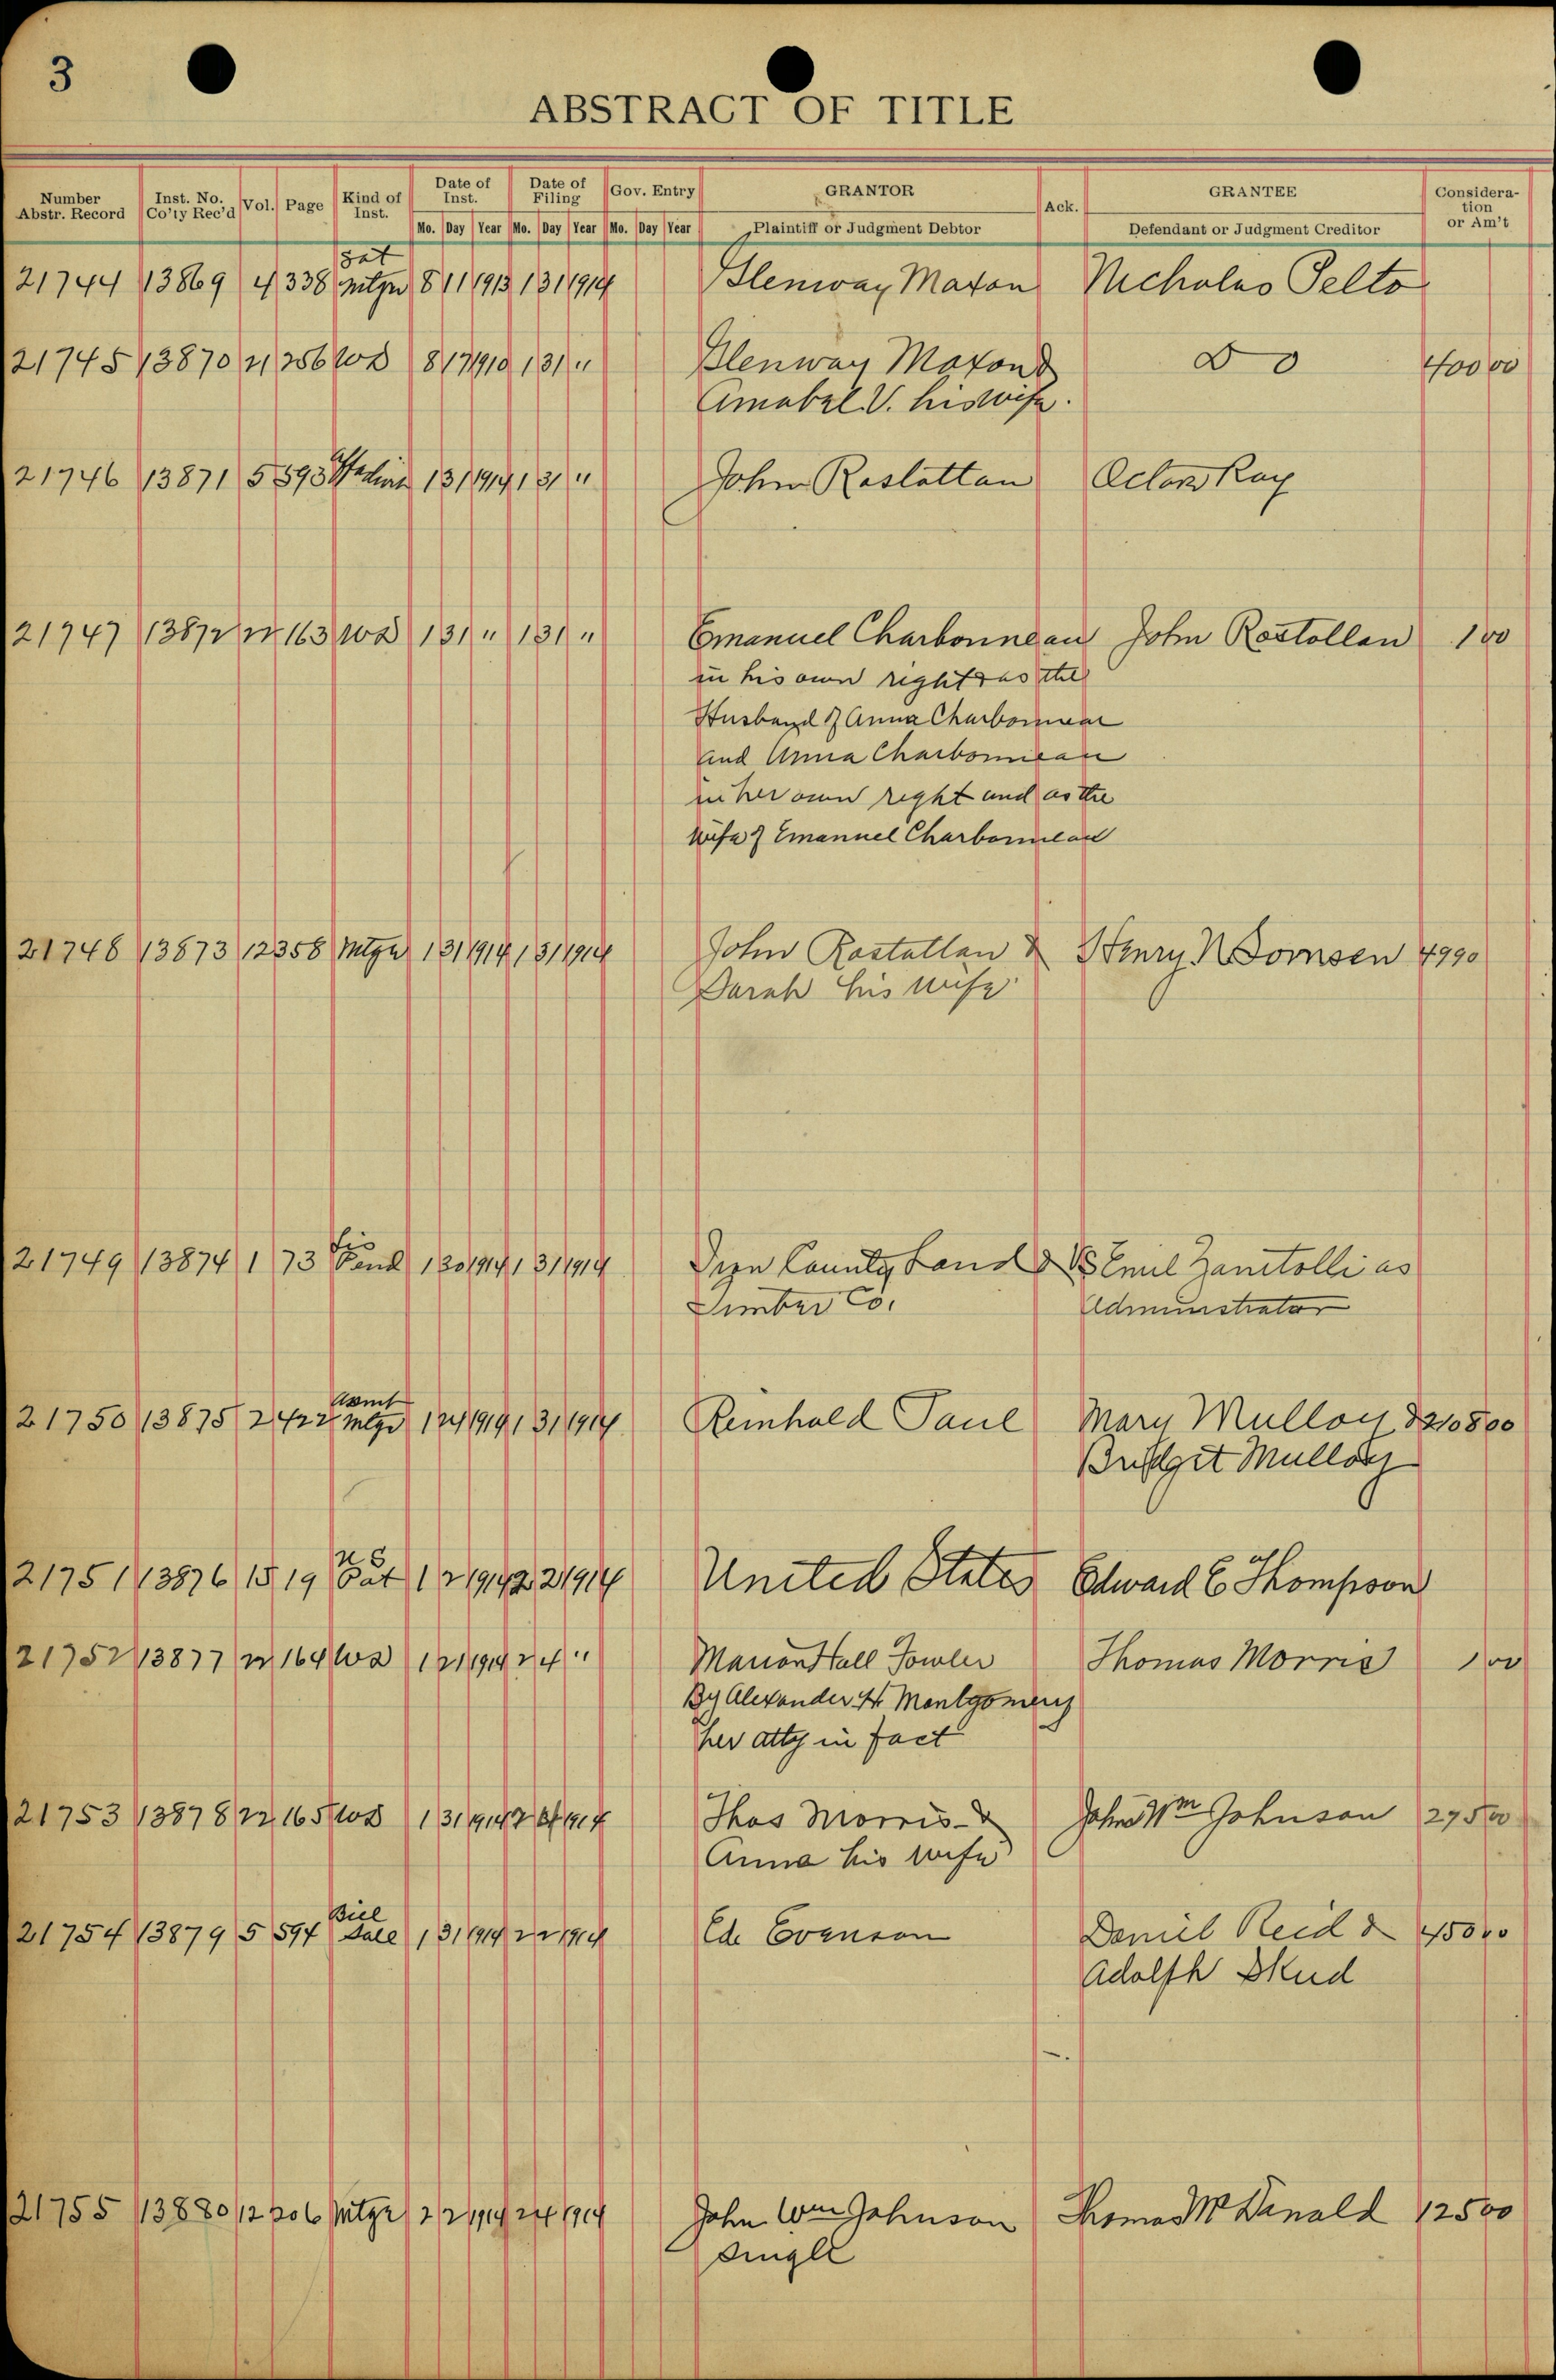 3
ABSTRACT OF TITLE
Number Abstr. Record Inst. No. Co'ty Rec'd Vol. Page Kind of Inst. Date of Inst. Date of Filing Gov. Entry GRANTOR Ack. GRANTEE Consideration or Am't
Mo. Day Year Mo. Day Year Mo. Day Year Plaintiff or Judgment Debtor Defendant or Judgment Creditor
Sat
21744 13869 4 338 Mtge 8 11 1913 1 31 1914 Glenway Maxon Nicholas Pelto
21745 13870 21 256 WD 8 17 1910 1 31 " Glenway Maxon & Do 400 00
Amabel V. his wife.
21746 13871 5 593 1 31 1914 1 31 " John Rostollan Octor Ray
21747 13872 22 163 WD 1 31 " 1 31 " Emanuel Charbonneau John Rostollan 1 00
in his own right & as the
Husband of Anna Charbonneau
and Anna Charbonneau
in her own right and as the
Wife of Emanuel Charbonneau
21748 13873 12 358 Mtge 1 31 1914 1 31 1914 John Rostollan & Henry N Tomsen 49 90
Sarah his wife
21749 13874 1 73 Lis Pend 1 30 1914 1 31 1914 Iron County Land & Vs Emil Zanitolli as
Timber Co. Administrator
Asmt
21750 13875 2 422 Mtge 1 24 1914 1 31 1914 Reinhold Paul Mary Mulloy & 210800
Bridget Mulloy
U S
21751 13876 15 19 Pat 1 2 1914 2 2 1914 United States Edward C Thompson
21752 13877 22 164 WD 1 21 1914 2 4 " Marion Hall Fowler Thomas Morris 1 00
By Alexander H Montgomery
her atty in fact
21753 13878 22 165 WD 1 31 1914 2 4 1914 Thos Morris & John Wm Johnson 275 00
Anna his wife
Bill
21754 13879 5 594 Sale 1 31 1914 2 2 1914 Ed. Evenson Daniel Reid & 450 00
Adolph Skud
21755 13880 12 206 Mtge 2 2 1914 2 4 1914 John Wm Johnson Thomas McDonald 125 00
Single